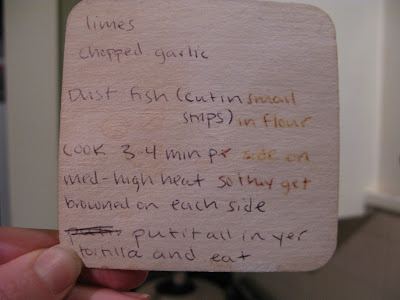 limes
chopped garlic
Dust fish (cut in small
strips) in flour
Cook 3-4 min pr side on
med-high heat so they get
browned on each side
put it all in yer
tortilla and eat